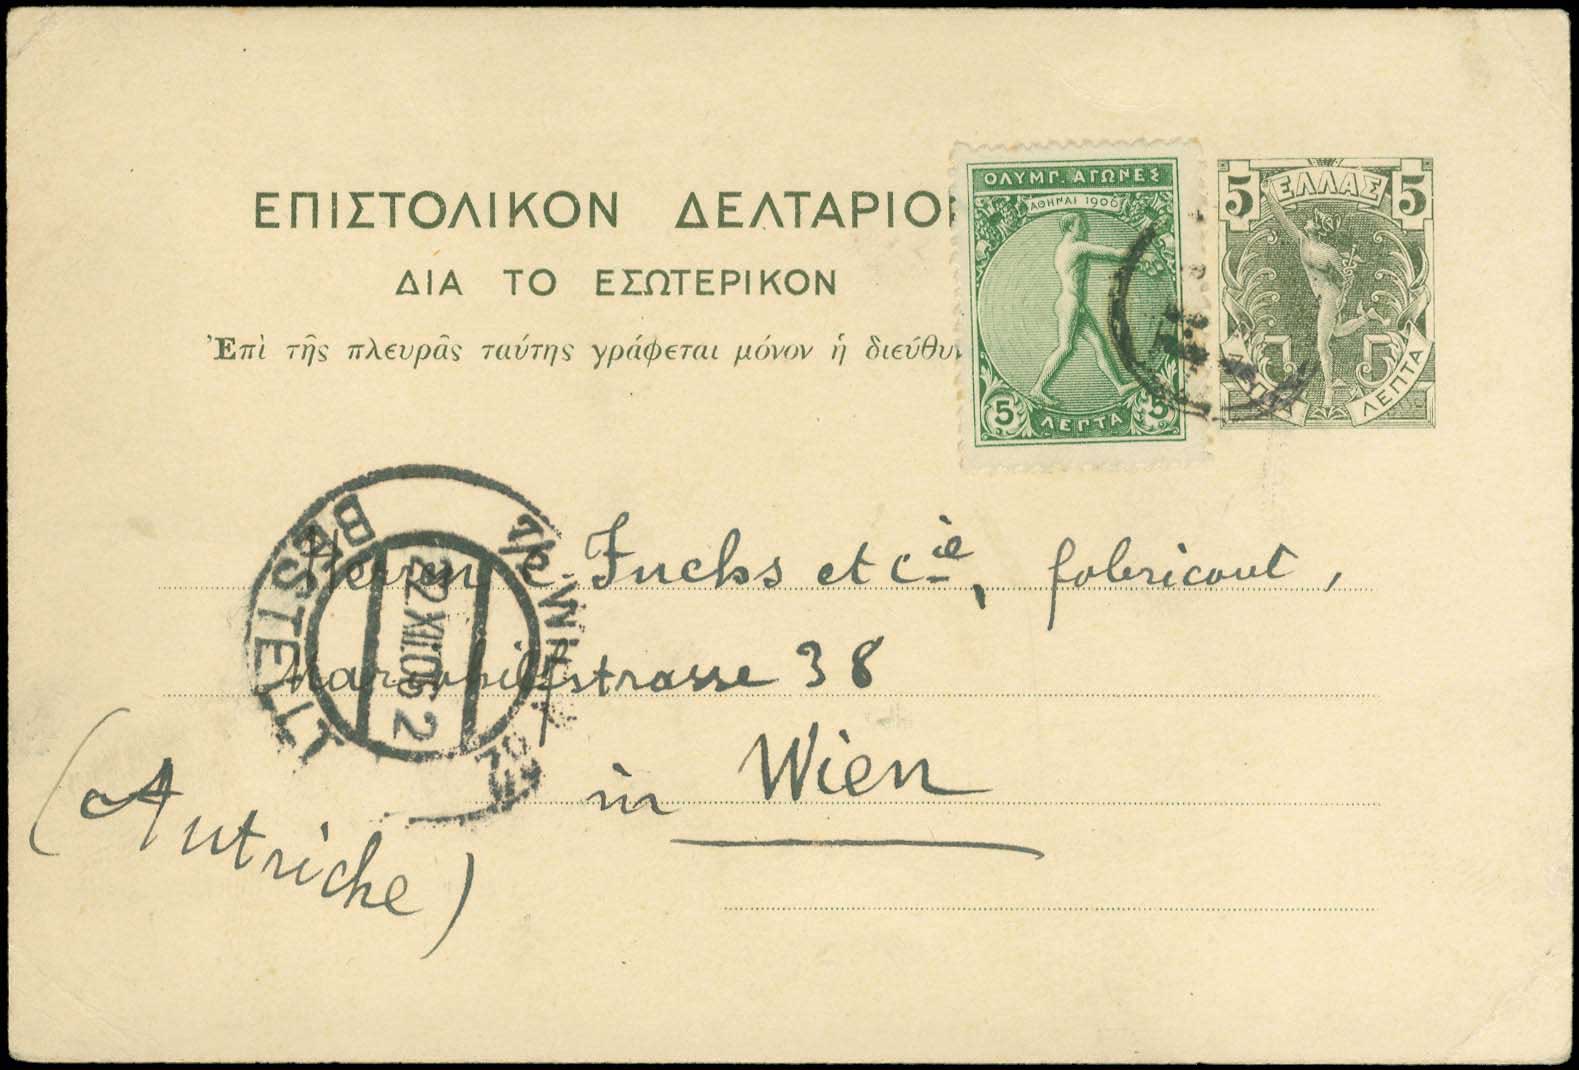 ΕΠΙΣΤΟΛΙΚΟΝ ΔΕΛΤΑΡΙΟ
ΔΙΑ ΤΟ ΕΣΩΤΕΡΙΚΟΝ
Ἐπὶ τῆς πλευρᾶς ταύτης γράφεται μόνον ἡ διεύθυν
ΟΛΥΜΠ. ΑΓΩΝΕΣ
ΑΘΗΝΑΙ 1906
5 ΛΕΠΤΑ 5
5 ΕΛΛΑΣ 5
5 5
ΛΕΠΤΑ
BESTELLT
WIEN
22.XII.06 2
Herren C. Fuchs et Cie, fabricant,
strasse 38
in Wien
(Autriche)